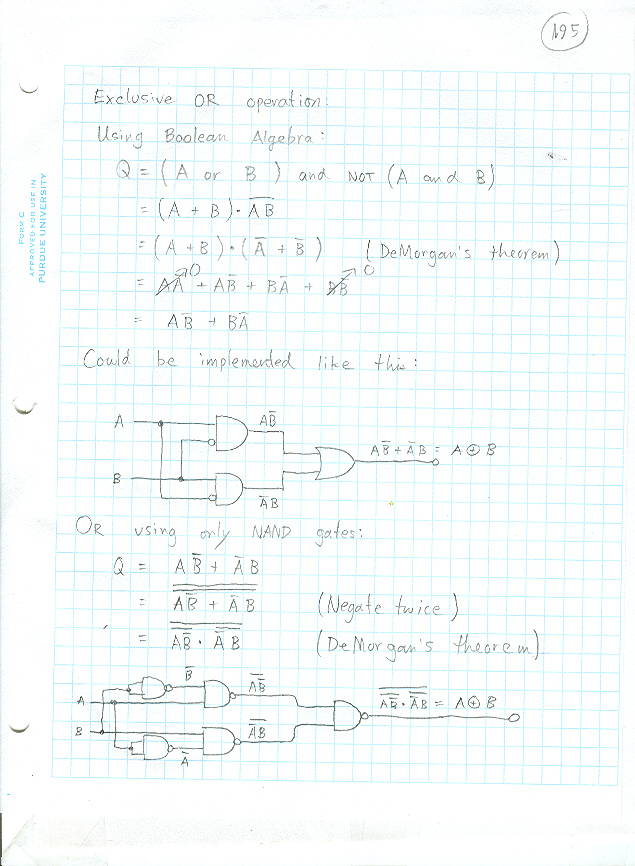 195
FORM C
APPROVED FOR USE IN
PURDUE UNIVERSITY
Exclusive OR operation:
Using Boolean Algebra:
Q = (A or B) and NOT (A and B)
= (A + B) · A̅B̅
= (A + B) · (A̅ + B̅) (DeMorgan's theorem)
= AA̅ 0 + AB̅ + BA̅ + BB̅ 0
= AB̅ + BA̅
Could be implemented like this:
A
AB̅
AB̅ + A̅B = A ⊕ B
B
A̅B
OR using only NAND gates:
Q = AB̅ + A̅B
= \overline{\overline{AB̅ + A̅B}} (Negate twice)
= \overline{\overline{AB̅} · \overline{A̅B}} (DeMorgan's theorem)
B̅
\overline{AB̅}
A
\overline{\overline{AB̅} · \overline{A̅B}} = A ⊕ B
B
\overline{A̅B}
A̅